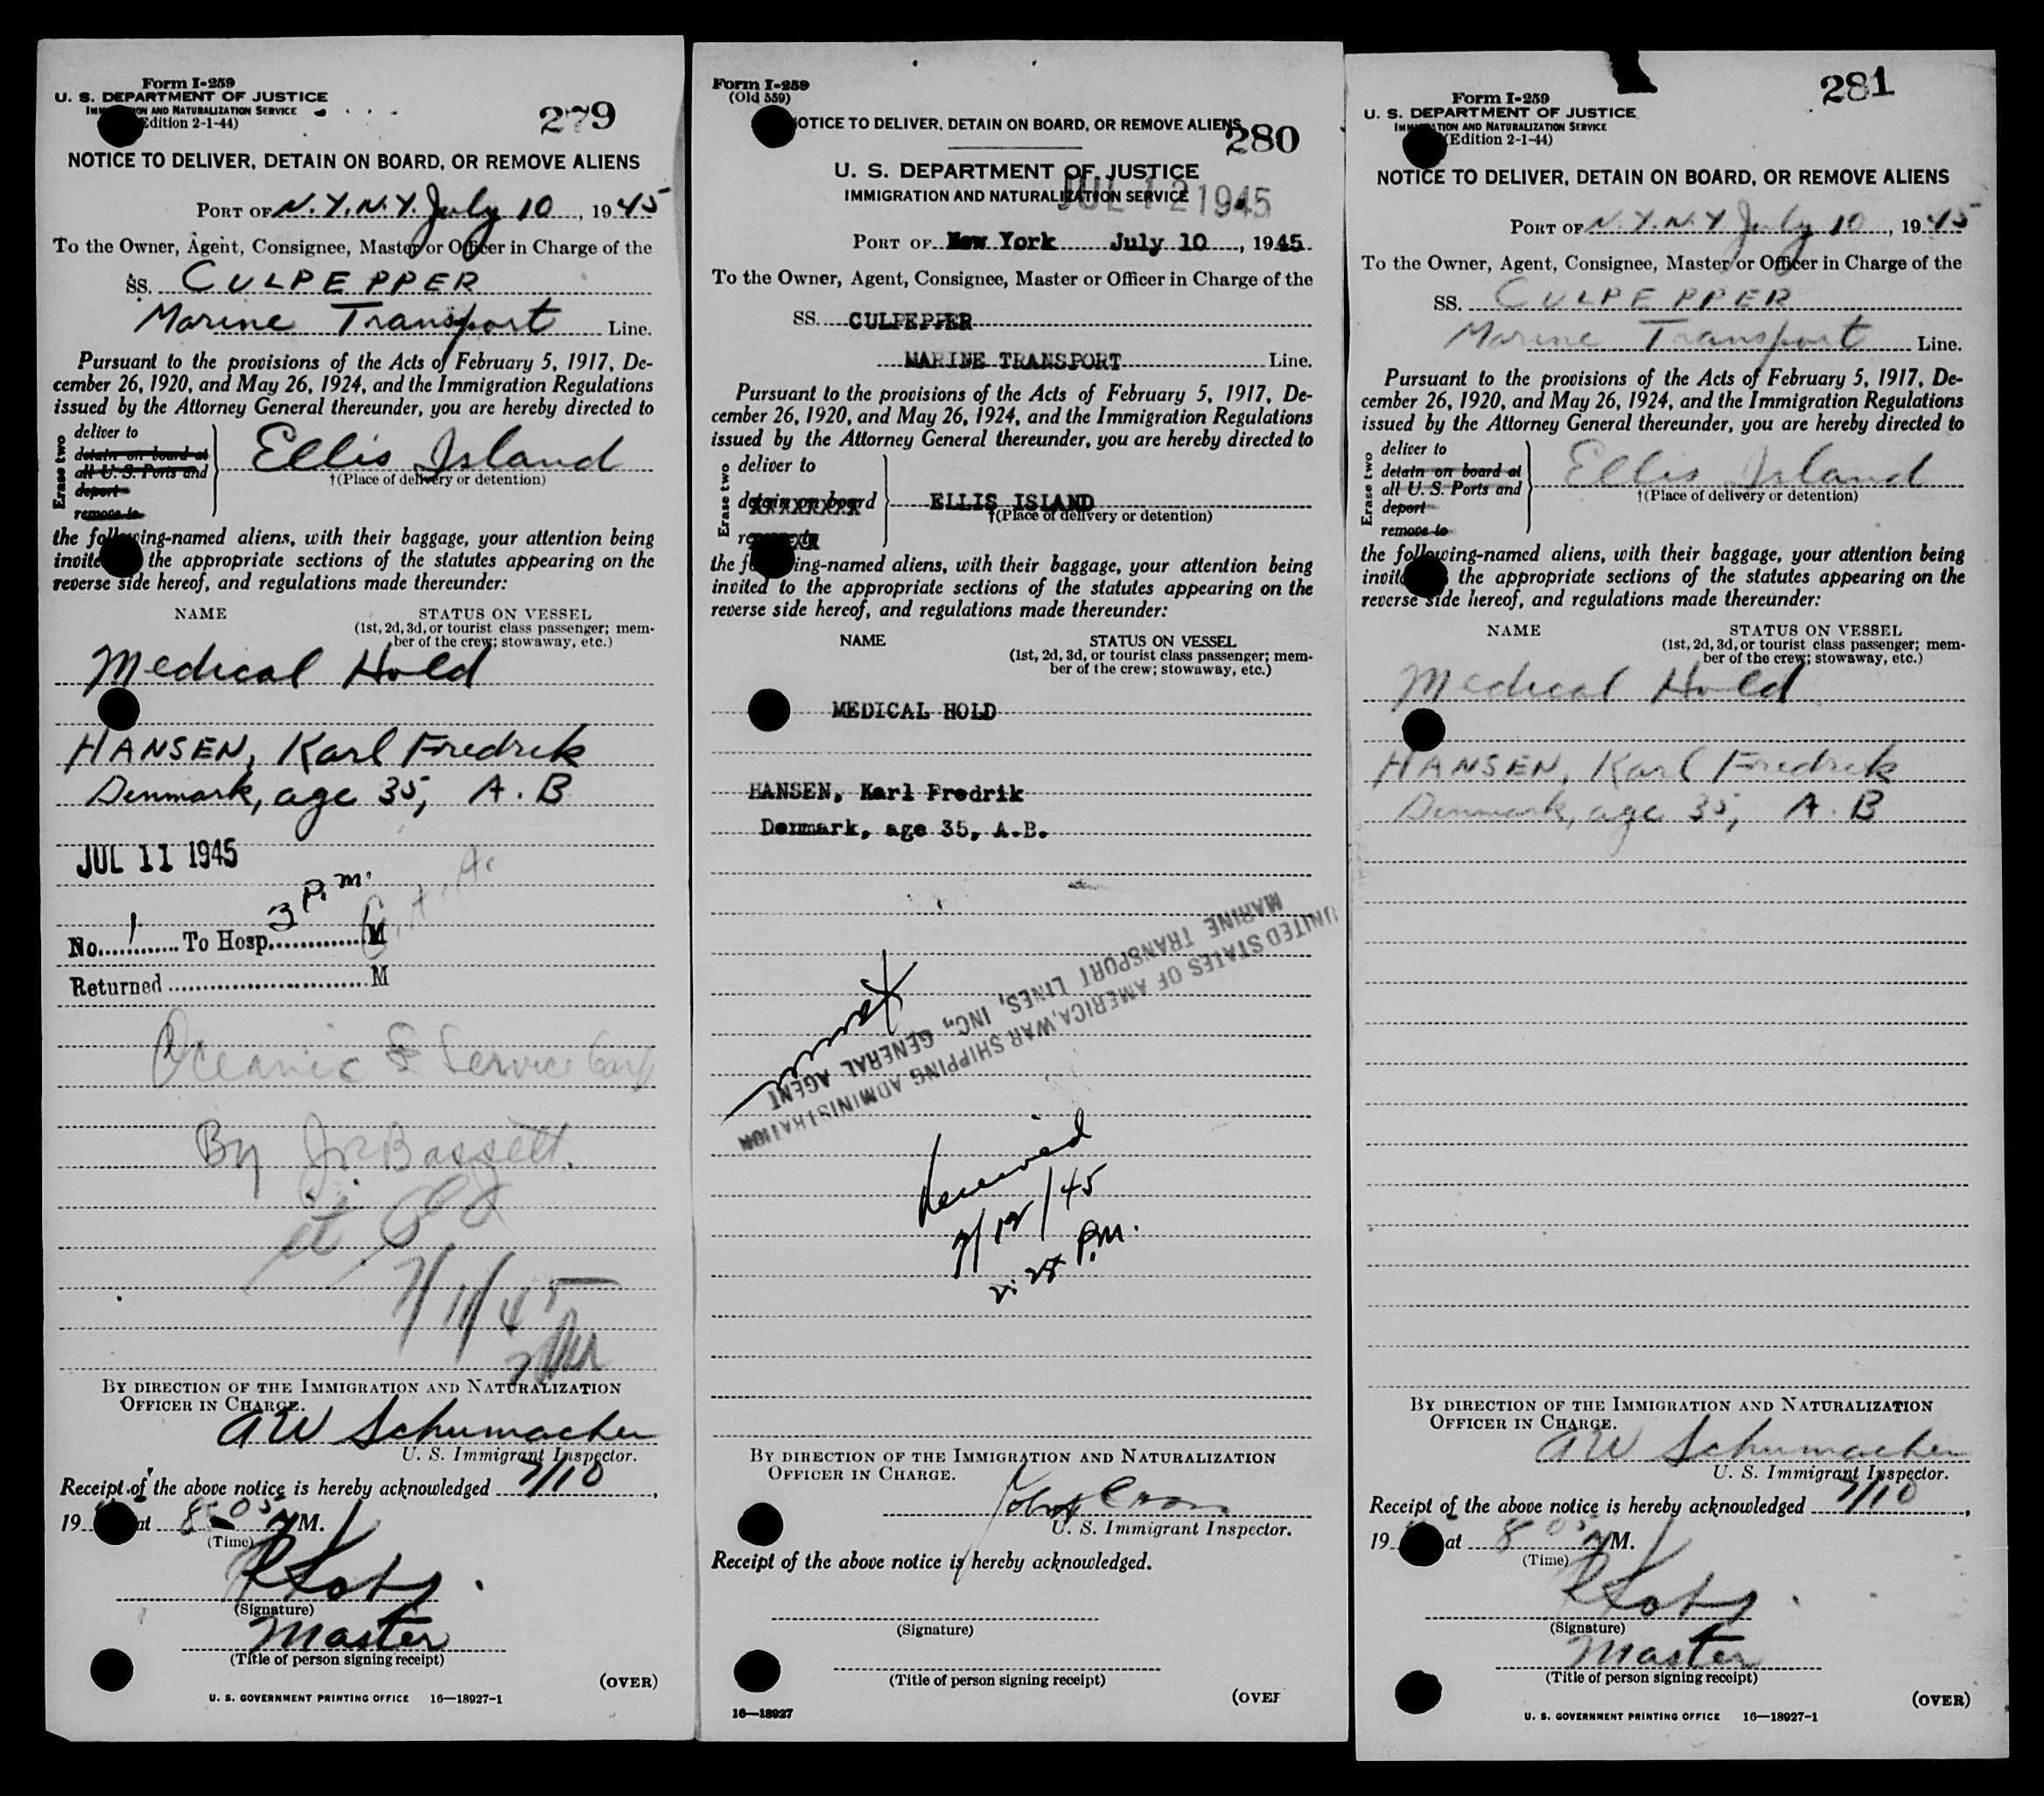 Form I-259
U. S. DEPARTMENT OF JUSTICE
IMMIGRATION AND NATURALIZATION SERVICE
(Edition 2-1-44)
279
NOTICE TO DELIVER, DETAIN ON BOARD, OR REMOVE ALIENS
PORT OF N.Y.N.Y. July 10, 1945
To the Owner, Agent, Consignee, Master or Officer in Charge of the
SS. CULPEPPER
Marine Transport Line.
Pursuant to the provisions of the Acts of February 5, 1917, De-
cember 26, 1920, and May 26, 1924, and the Immigration Regulations
issued by the Attorney General thereunder, you are hereby directed to
Erase two
deliver to
detain on board at
all U. S. Ports and
deport
remove to
Ellis Island
†(Place of delivery or detention)
the following-named aliens, with their baggage, your attention being
invited the appropriate sections of the statutes appearing on the
reverse side hereof, and regulations made thereunder:
NAME STATUS ON VESSEL
(1st, 2d, 3d, or tourist class passenger; mem-
ber of the crew; stowaway, etc.)
Medical Hold
HANSEN, Karl Fredrik
Denmark, age 35, A.B
JUL 11 1945
3 P.M.
No. 1 To Hosp. M
Returned M
Oceanic Service Corp
By Bassett.
7/11/45
BY DIRECTION OF THE IMMIGRATION AND NATURALIZATION
OFFICER IN CHARGE.
AW Schumacher
U. S. Immigrant Inspector.
Receipt of the above notice is hereby acknowledged 7/10,
19 at 8 05 M.
(Time)
(Signature)
Master
(Title of person signing receipt)
(OVER)
U. S. GOVERNMENT PRINTING OFFICE 16—18927-1
Form I-259
(Old 559)
NOTICE TO DELIVER, DETAIN ON BOARD, OR REMOVE ALIENS
280
U. S. DEPARTMENT OF JUSTICE
IMMIGRATION AND NATURALIZATION SERVICE
JUL 12 1945
PORT OF New York July 10, 1945
To the Owner, Agent, Consignee, Master or Officer in Charge of the
SS. CULPEPPER
MARINE TRANSPORT Line.
Pursuant to the provisions of the Acts of February 5, 1917, De-
cember 26, 1920, and May 26, 1924, and the Immigration Regulations
issued by the Attorney General thereunder, you are hereby directed to
Erase two
deliver to
detain on board
remove to
ELLIS ISLAND
†(Place of delivery or detention)
the following-named aliens, with their baggage, your attention being
invited to the appropriate sections of the statutes appearing on the
reverse side hereof, and regulations made thereunder:
NAME STATUS ON VESSEL
(1st, 2d, 3d, or tourist class passenger; mem-
ber of the crew; stowaway, etc.)
MEDICAL HOLD
HANSEN, Karl Fredrik
Denmark, age 35, A.B.
UNITED STATES OF AMERICA, WAR SHIPPING ADMINISTRATION
MARINE TRANSPORT LINES, INC., GENERAL AGENT
Received
7/12/45
P.M.
BY DIRECTION OF THE IMMIGRATION AND NATURALIZATION
OFFICER IN CHARGE.
U. S. Immigrant Inspector.
Receipt of the above notice is hereby acknowledged.
(Signature)
(Title of person signing receipt)
(OVER
16—18927
Form I-259
U. S. DEPARTMENT OF JUSTICE
IMMIGRATION AND NATURALIZATION SERVICE
(Edition 2-1-44)
281
NOTICE TO DELIVER, DETAIN ON BOARD, OR REMOVE ALIENS
PORT OF N.Y.N.Y July 10, 1945
To the Owner, Agent, Consignee, Master or Officer in Charge of the
SS. CULPEPPER
Marine Transport Line.
Pursuant to the provisions of the Acts of February 5, 1917, De-
cember 26, 1920, and May 26, 1924, and the Immigration Regulations
issued by the Attorney General thereunder, you are hereby directed to
Erase two
deliver to
detain on board at
all U. S. Ports and
deport
remove to
Ellis Island
†(Place of delivery or detention)
the following-named aliens, with their baggage, your attention being
invited the appropriate sections of the statutes appearing on the
reverse side hereof, and regulations made thereunder:
NAME STATUS ON VESSEL
(1st, 2d, 3d, or tourist class passenger; mem-
ber of the crew; stowaway, etc.)
Medical Hold
HANSEN, Karl Fredrik
Denmark, age 35, A.B
BY DIRECTION OF THE IMMIGRATION AND NATURALIZATION
OFFICER IN CHARGE.
AW Schumacher
U. S. Immigrant Inspector.
Receipt of the above notice is hereby acknowledged 7/10,
19 at 8 05 M.
(Time)
(Signature)
Master
(Title of person signing receipt)
(OVER)
U. S. GOVERNMENT PRINTING OFFICE 16—18927-1